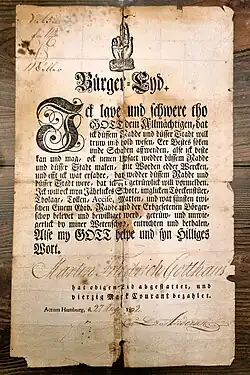 Bürger-Eyd.
Ick lave und schwere tho
GOTT dem Allmächtigen, dat
ick düssem Rahde und düsser Stadt will
truw und hold wesen, Eer Bestes söken
unde Schaden affwenden, alse ick beste
kan und mag, ock nenen Upsaet wedder düssem Rahde
und düsser Stadt maken, mit Worden edder Wercken,
und efft ick wat erfahre, dat wedder düssem Rahde und
düsser Stadt were, dat ick getruwlick will vermelden.
Ick will ock myn Jährlickes Schott, imglicken Törckenstüer,
Tholage, Tollen, Accise, Matten, und wat sünsten twischen
Einem Ehrb. Rahde und der Erbgesetenen Börgerschop
belevet und bewilliget werd, getruw- und unwiegerlick
by miner Wetenschop, entrichten und bethalen.
Alse my GOTT helpe und syn Hilliges
Wort.
hat obigen Eid abgestattet, und
vierzig Mark Courant bezahlet.
Actum Hamburg, d. 27